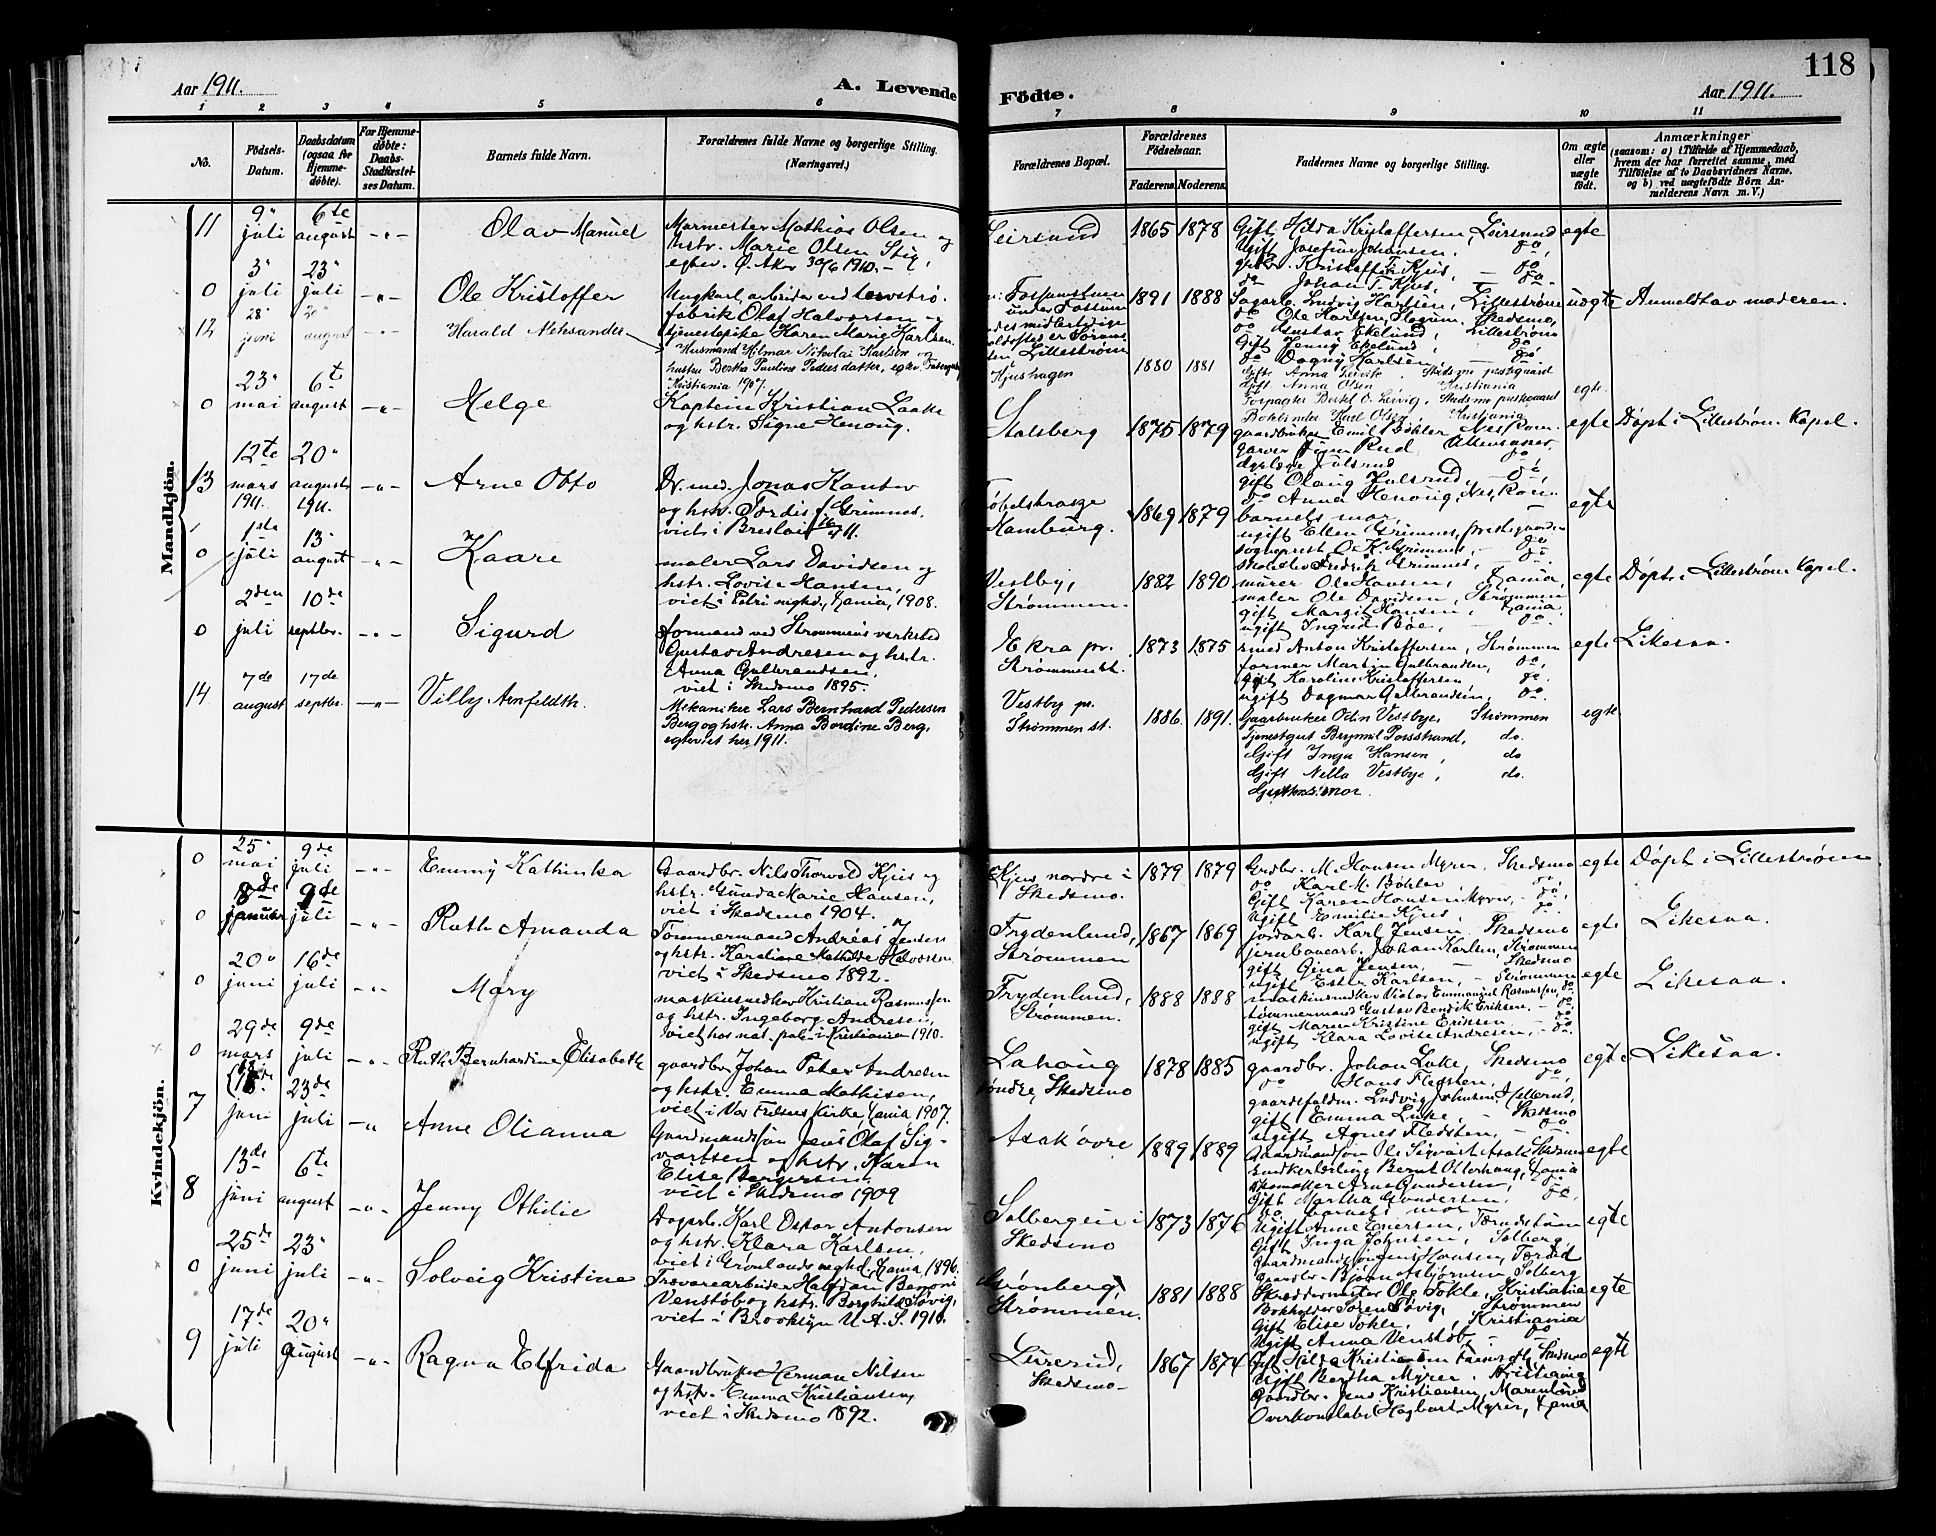 118
Aar 1911.
A. Levende Födte.
Aar 1911.
1 2 3 4 5 6 7 8 9 10 11
No.
Födsels-Datum.
Daabsdatum (ogsaa for Hjemme-døbte).
For Hjemme-døbte: Daabs-Stadfæstel-ses Datum.
Barnets fulde Navn.
Forældrenes fulde Navne og borgerlige Stilling. (Næringsvei.)
Forældrenes Bopæl.
Forældrenes Födselsaar.
Faderens. Moderens.
Faddernes Navne og borgerlige Stilling.
Om ægte eller uægte født.
Anmærkninger
(saasom: a) i Tilfælde af Hjemmedaab, hvem der har forrettet samme, med Tilföielse af to Daabsvidners Navne, og b) ved uægtefödte Börn An-melderens Navn m. V.)
Mandkjön.
11 9" juli 6te august -"- Olav Manuel
Murmester Mathias Olsen og
hstr. Marie Olsen Stig,
egtev. Ø. Aker 30/6 1910.-
Leirsund 1865 1878
Gift Hilda Kristoffersen, Leirsund
Ugift Josefine Johansen, do
Kristoffer T. Kjus, - do
do Johan T. Kjus, - do
egte
0 3" juli 23" juli -"- Ole Kristoffer
Ungkarl, arbeider ved
fabrik Olaf Halvorsen og
tjenestepike Karen Marie Karlsen
Fossumstuen
under Fossum
midlertidige
Lillestrøm
1891 1888
Sagarb. Ludvig Karlsen, Lillestrøm
do Ole Karlsen, Skedsmo,
do Gustav Ekelund, Lillestrøm
Gift Jenny Ekelund, do
do Dagny Karlsen,
uegte Anmeldt av moderen.
12 28" juni 20" august -"- Harald Aleksander
Husmand Hilmar Nikolai Karlsen og
hustru Bertha Pauline Pedersdatter, egtev.
Kristiania 1907.
Kjushagen 1880 1881
Gifte Anna Leivik, Skedsmo prestgaard
Gift Anna Olsen Kristiania
Forpagter Bertel O. Leivig, Skedsmo prestgaard
Karl Olsen, Kristiania
egte.
0 23" mai 6t august -"- Helge
Kaptein Kristian Laake
og hstr. Signe Henoug.
Stalsberg 1875 1879
gaardbruker Emil Bøhler, Nes Rom.
garver Rud
Julsrud do,
gift Olaug Julsrud, - do,
do Anna Henoug, Nes, Rom.
egte Døpt i Lillestrøm Kapel.
13 12te mars 1911. 20" august 1911. -"- Arne Otto
Dr. med. Jonas Kanter
og hstr. Tordis f. Grimnes,
viet i Breslau 11.
Hamburg. 1869 1879
barnets mor,
ugift Ellen Grimnes, prestegaarden
sogneprest O. K. Grimnes, - do
Fredrik Grimnes, - do
egte
0 1ste juli 13" august -"- Kaare
maler Lars Davidsen og
hstr. Lovise Hansen,
viet i Petri mighd., Kania, 1908.
Vestby,
Strømmen.
1882 1890
murer Ole Hansen, Kania,
maler Ole Davidsen, Strømmen
gift Margit Hansen, Kania,
ugift Ingrid Bøe, - do.
egte Døpt i Lillestrøm Kapel.
0 2den juli 10de septbr. -"- Sigurd
formand ved Strømmens verksted
Gustav Andresen og hstr.
Anna Gulbrandsen,
viet i Skedsmo 1895.
Ekra pr.
Strømmen st.
1873 1875
smed Anton Kristoffersen, Strømmen
former Martin Gulbrandsen, do,
Gift Karoline Kristoffersen do.
ugift Dagmar Gulbrandsen, do.
egte Likesaa.
14 7de august 17de septbr. -"- Villy Arnfeldth.
Mekaniker Lars Bernhard Pedersen
Berg og hstr. Anna Bordine Berg,
egteviet her 1911.
Vestby pr.
Strømmen st.
1886. 1891.
Gaarbruker Odin Vestbye, Strømmen
Tjenestgut Brynmil Torsstrand, do.
Gift Inga Hansen, do
Gift Nella Vestbye, do.
mor.
egte.
Kvindekjön.
0 25" mai 9de juli -"- Emmy Kathinka
Gaardbr. Nils Thorvald Kjus og
hstr. Gunda Marie Hansen,
viet i Skedsmo 1904.
Kjus nordre i
Skedsmo.
1879 1879
Grdbr. M. Hansen Myrer, Skedsmo
do Karl M. Bøhler, do,
Gift Karen Hansen Myrer, - do.
Ugift Emilie Kjus, - do.
egte Døpt i Lillestrøm
0 18de januar 9de juli -"- Ruth Amanda
Tømmermand Andreas Jensen
og hstr. Karoline Mathilde Halvorsen
viet i Skedsmo 1892.
Frydenlund,
Strømmen
1867 1869
jordarb. Karl Jensen, Skedsmo
jernbanearb. Johan Karlsen, Strømmen
gift Gina Jensen, - Skedsmo
ugift Ester Karlsen, - Strømmen
egte Likesaa.
0 20" juni 16de juli -"- Mary
maskinsmedker Kristian Rasmussen
og hstr. Ingeborg Andresen,
viet hos not. pub. i Kristiania 1910.
Frydenlund,
Strømmen.
1888 1888
maskinsmedker Victor Emmanuel Rasmussen, do.
tømmermand Gustav Bendik Eriksen - do
gift Maren Kristine Eriksen, - do
ugift Klara Lovise Andresen, - do.
egte Likesaa.
0 29de mars 9de juli -"- Ruth Bernhardine Elisabeth
gaardbr. Johan Peter Andresen
og hstr. Emma Mathisen,
viet i Vor Frelsers Kirke, Kania, 1907.
Lahaug
søndre, Skedsmo
1878 1885
gaardbr. Johan Luke, Skedsmo
do Hans Flesten, do,
gaardsfuldm. Ludvig Johnsen, Hellerud,
gift Emma Luke, - Skedsmo
ugift Agnes Fledsten, - do.
egte Likesaa.
7 juni 23de juli -"- Anne Olianna
Gaardmandsøn Jens Olaf Sig-
vartsen og hstr. Karen
Elise Bergersen,
viet i Skedsmo 1909
Asak øvre 1889 1889
Gaardmandsøn Ole Sigvart Asak Skedsmo
Bernt Otterhaug, Kania
Arne Gundersen, do,
Gift Martha Gundersen, do,
do barnets mor
egte
8 13de juni 6te august -"- Jenny Othilie
Dagarb. Karl Oskar Antonsen
og hstr. Klara Karlsen,
viet i Grønlands mighd., Kania, 1896.
Solbergeie i
Skedsmo
1873 1876
Ugift Anne Enersen,
Gift Inga Johnsen, Solberg,
Gaardmandsøn Hansen,
Gaardbr. Bjørn Asbjørnsen, Solberg
egte
0 25de juni 23" juli -"- Solveig Kristine
Trævarearbeider Halfdan Benoni
Venstøb og hstr. Borghild Søvig,
viet i Brooklyn U. A. S. 1910.
Grønberg,
Strømmen.
1881 1888
Skreddermester Ole Tokle, Kristiania
Bokholder Søren Søvig, Strømmen
Gift Elise Tokle, Kristiania
Ugift Anna Venstøb, - do
egte
9 17de juli 20" august -"- Ragna Elfrida
Gaardbruker Herman Nilsen
og hstr. Emma Kristiansen,
viet i Skedsmo 1892.
Lurerud,
Skedsmo-
1867 1874
Gift Hilda Kristiansen Skedsmo
Ugift Bertha Myrer, Kristiania
Gaardbr. Jens Kristiansen, Marenlund
Overkonstabel Hagbart Myrer, Kania
egte